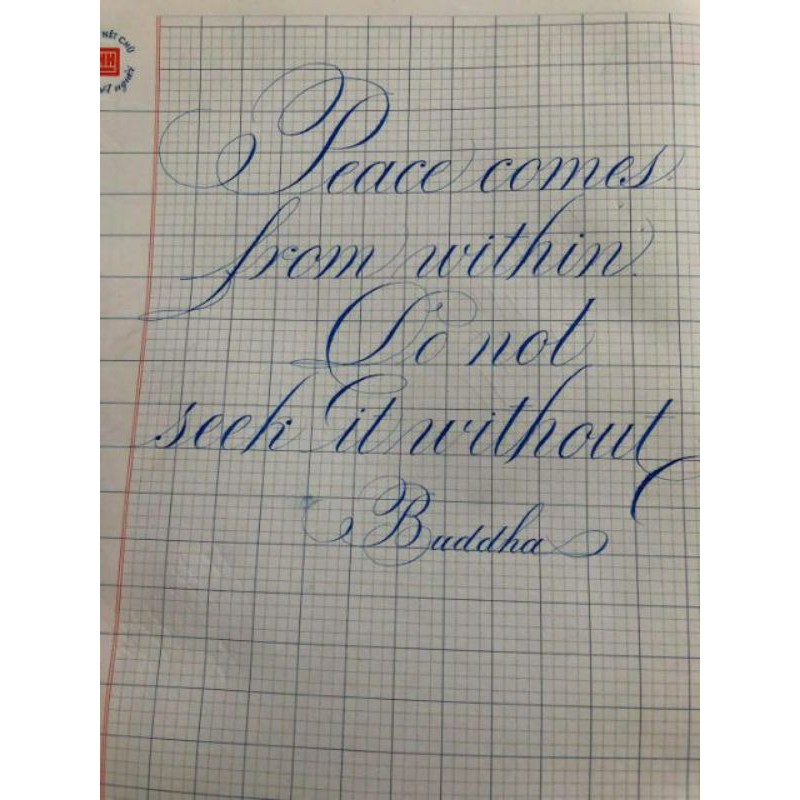 NÉT CHỮ
NGƯỜI
Peace comes
from within.
Do not
seek it without
Buddha